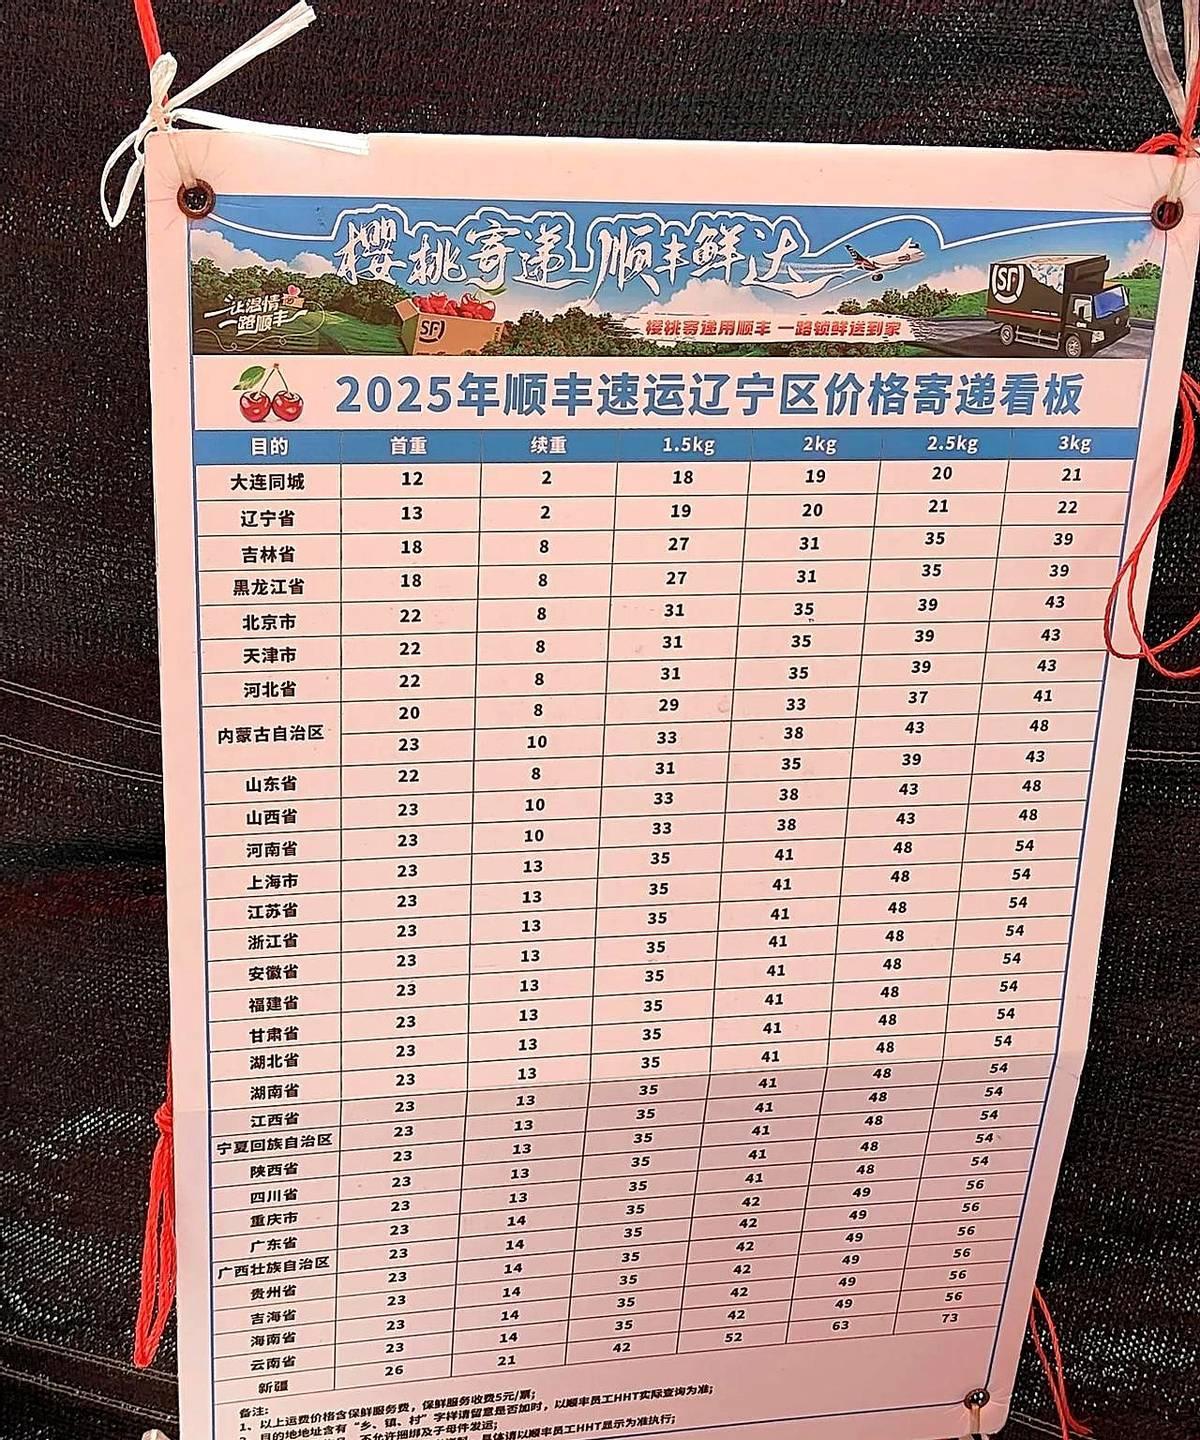 櫻桃寄递 顺丰鲜达
让温情
一路顺丰
SF
SF
樱桃寄递用顺丰 一路锁鲜送到家
2025年顺丰速运辽宁区价格寄递看板
目的 首重 续重 1.5kg 2kg 2.5kg 3kg
大连同城 12 2 18 19 20 21
辽宁省 13 2 19 20 21 22
吉林省 18 8 27 31 35 39
黑龙江省 18 8 27 31 35 39
北京市 22 8 31 35 39 43
天津市 22 8 31 35 39 43
河北省 22 8 31 35 39 43
内蒙古自治区 20 8 29 33 37 41
23 10 33 38 43 48
山东省 22 8 31 35 39 43
山西省 23 10 33 38 43 48
河南省 23 10 33 38 43 48
上海市 23 13 35 41 48 54
江苏省 23 13 35 41 48 54
浙江省 23 13 35 41 48 54
安徽省 23 13 35 41 48 54
福建省 23 13 35 41 48 54
甘肃省 23 13 35 41 48 54
湖北省 23 13 35 41 48 54
湖南省 23 13 35 41 48 54
江西省 23 13 35 41 48 54
宁夏回族自治区 23 13 35 41 48 54
陕西省 23 13 35 41 48 54
四川省 23 13 35 41 48 54
重庆市 23 13 35 41 48 54
广东省 23 14 35 42 49 56
广西壮族自治区 23 14 35 42 49 56
贵州省 23 14 35 42 49 56
吉海省 23 14 35 42 49 56
海南省 23 14 35 42 49 56
云南省 23 14 35 42 49 56
新疆 26 21 42 52 63 73
备注:
1、以上运费价格含保鲜服务费，保鲜服务收费5元/票;
目的地地址含有“乡、镇、村”字样请留意是否加时，以顺丰员工HHT实际查询为准;
不允许捆绑及子母件发运;
具体请以顺丰员工HHT显示为准执行;